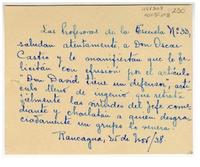 230
Las Profesoras de la Escuela Nº 33,
saludan atentamente a Don Oscar
Castro y le manifiestan que lo fe-
licitan con efusión por el artículo
"Don David tiene un defensor, artí-
culo lleno de ingenio que
las virtudes del Jefe
y a quien desgra-
ciadamente un grupo lo venera.
Rancagua, 25 de Nov/38.